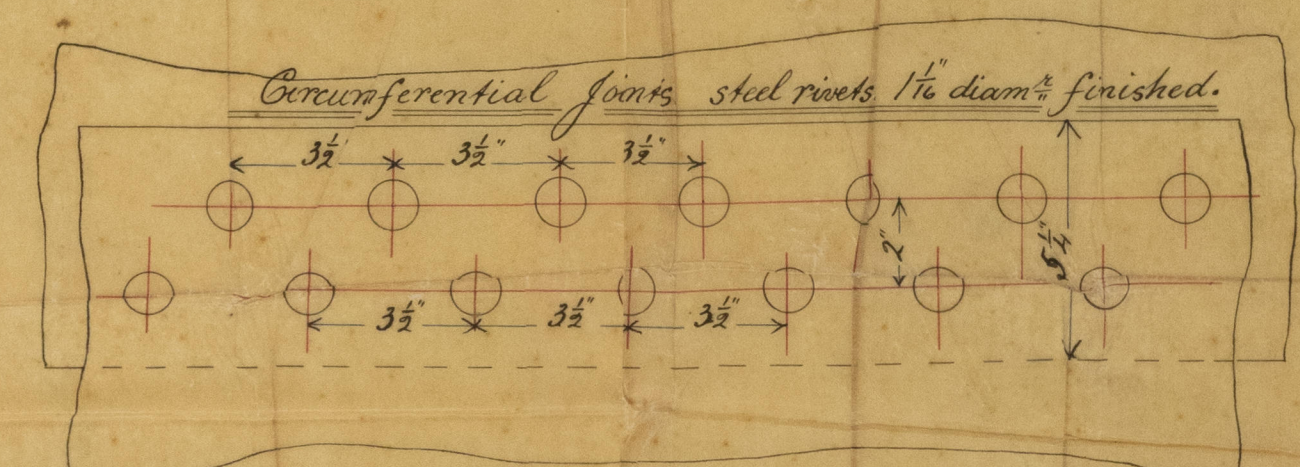 Circumferential Joints steel rivets 1 1/16" diamr finished.
3 1/2" 3 1/2" 3 1/2"
2"
5 1/4"
3 1/2" 3 1/2" 3 1/2"